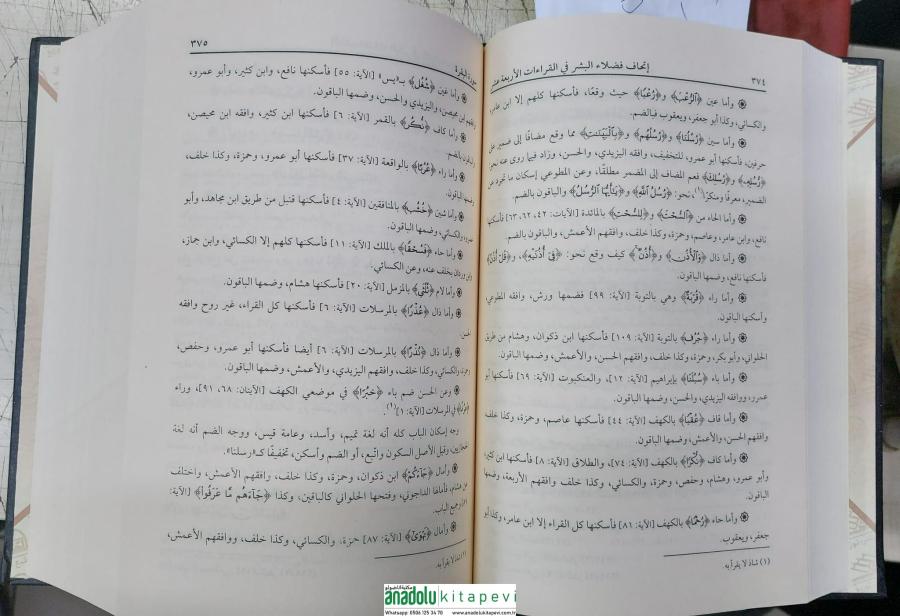 ٣٧٤
إتحاف فضلاء البشر في القراءات الأربعة عشر
وأما عين ﴿الرُّعْبَ﴾ و﴿رُعْبًا﴾ حيث وقعا، فأسكنها كلهم إلا ابن عامر،
والكسائي، وكذا أبو جعفر، ويعقوب فبالضم.
وأما سين ﴿رُسُلُنَا﴾ و﴿رُسُلُهُم﴾ و﴿بِالْبَيِّنَٰتِ﴾ مما وقع مضافًا إلى ضمير على
حرفين، فأسكنها أبو عمرو، للتخفيف، وافقه اليزيدي، والحسن، وزاد فيما روى عنه نحو
﴿رُسُلِهِ﴾ و﴿رُسُلِكَ﴾ فعم المضاف إلى المضمر مطلقًا، وعن المطوعي إسكان ما تجرد عن
الضمير، معرفًا ومنكرًا(١)، نحو: ﴿رُسُلُ اللَّهِ﴾ و﴿يَٰأَيُّهَا الرُّسُلُ﴾ والباقون بالضم.
وأما الحاء من ﴿السُّحْتَ﴾ و﴿لِلسُّحْتِ﴾ بالمائدة [الآيات: ٤٢، ٦٢، ٦٣] فأسكنها
نافع، وابن عامر، وعاصم، وحمزة، وكذا خلف، وافقهم الأعمش، والباقون بالضم.
وأما ذال ﴿وَالْأُذُنَ﴾ و﴿أُذُنٌ﴾ كيف وقع نحو: ﴿فِي أُذُنَيْهِ﴾، و﴿قُلْ أُذُنُ﴾
فأسكنها نافع، وضمها الباقون.
وأما راء ﴿قُرْبَةٌ﴾ وهي بالتوبة [الآية: ٩٩] فضمها ورش، وافقه المطوعي
وأسكنها الباقون.
وأما راء ﴿جُرُفٍ﴾ بالتوبة [الآية: ١٠٩] فأسكنها ابن ذكوان، وهشام من طريق
الحلواني، وأبو بكر، وحمزة، وكذا خلف، وافقهم الحسن، والأعمش، وضمها الباقون.
وأما باء ﴿سُبُلَنَا﴾ بإبراهيم [الآية: ١٢]، والعنكبوت [الآية: ٦٩] فأسكنها أبو
عمرو، ووافقه اليزيدي، والحسن، وضمها الباقون.
وأما قاف ﴿عُقْبًا﴾ بالكهف [الآية: ٤٤] فأسكنها عاصم، وحمزة، وكذا خلف
وافقهم الحسن، والأعمش، وضمها الباقون.
وأما كاف ﴿نُكْرًا﴾ بالكهف [الآية: ٧٤]، والطلاق [الآية: ٨] فأسكنها ابن كثير،
وأبو عمرو، وهشام، وحفص، وحمزة، والكسائي، وكذا خلف وافقهم الأربعة، وضمها
الباقون.
وأما حاء ﴿رُحْمًا﴾ بالكهف [الآية: ٨١] فأسكنها كل القراء إلا ابن عامر، وكذا أبو
جعفر، ويعقوب.
(١) شاذ لا يقرأ به.
سورة البقرة
٣٧٥
وأما غين ﴿شُغُلٍ﴾ بـ«يس» [الآية: ٥٥] فأسكنها نافع، وابن كثير، وأبو عمرو،
وافقهم ابن محيصن، واليزيدي والحسن، وضمها الباقون.
وأما كاف ﴿نُكُرٍ﴾ بالقمر [الآية: ٦] فأسكنها ابن كثير، وافقه ابن محيصن،
والباقون بالضم.
وأما راء ﴿عُرُبًا﴾ بالواقعة [الآية: ٣٧] فأسكنها أبو عمرو، وحمزة، وكذا خلف،
وضمها الباقون.
وأما شين ﴿خُشُبٌ﴾ بالمنافقين [الآية: ٤] فأسكنها قنبل من طريق ابن مجاهد، وأبو
عمرو، والكسائي، وضمها الباقون.
وأما حاء ﴿فَسُحْقًا﴾ بالملك [الآية: ١١] فأسكنها كلهم إلا الكسائي، وابن جماز،
وابن وردان بخلف عنه، وعن الكسائي.
وأما لام ﴿ثُلُثَيِ﴾ بالمزمل [الآية: ٢٠] فأسكنها هشام، وضمها الباقون.
وأما ذال ﴿عُذْرًا﴾ بالمرسلات [الآية: ٦] فأسكنها كل القراء، غير روح وافقه
الحسن.
وأما ذال ﴿نُذْرًا﴾ بالمرسلات [الآية: ٦] أيضا فأسكنها أبو عمرو، وحفص،
وحمزة، والكسائي، وكذا خلف، وافقهم اليزيدي، والأعمش، وضمها الباقون.
وعن الحسن ضم باء ﴿خُبْرًا﴾ في موضعي الكهف [الآيتان: ٦٨، ٩١]، وراء
﴿عُرْفًا﴾ في المرسلات [الآية: ١](١).
وجه إسكان الباب كله أنه لغة تميم، وأسد، وعامة قيس، ووجه الضم أنه لغة
الحجازيين، وقيل الأصل السكون وأتبع، أو الضم وأسكن، تخفيفًا كـ«رسلنا».
وأمال ﴿جَاءَكُمْ﴾ ابن ذكوان، وحمزة، وكذا خلف، وافقهم الأعمش، واختلف
عن هشام، فأمالها الداجوني، وفتحها الحلواني كالباقين، وكذا ﴿جَاءَهُم مَّا عَرَفُوا﴾ [الآية:
وجميع الباب.
وأمال ﴿تَهْوَىٰ﴾ [الآية: ٨٧] حمزة، والكسائي، وكذا خلف، ووافقهم الأعمش،
(١) شاذ لا يقرأ به.
مكتبة اناضولو
anadolu kitapevi
Whatsapp: 0506 125 34 78 www.anadolukitapevi.com.tr